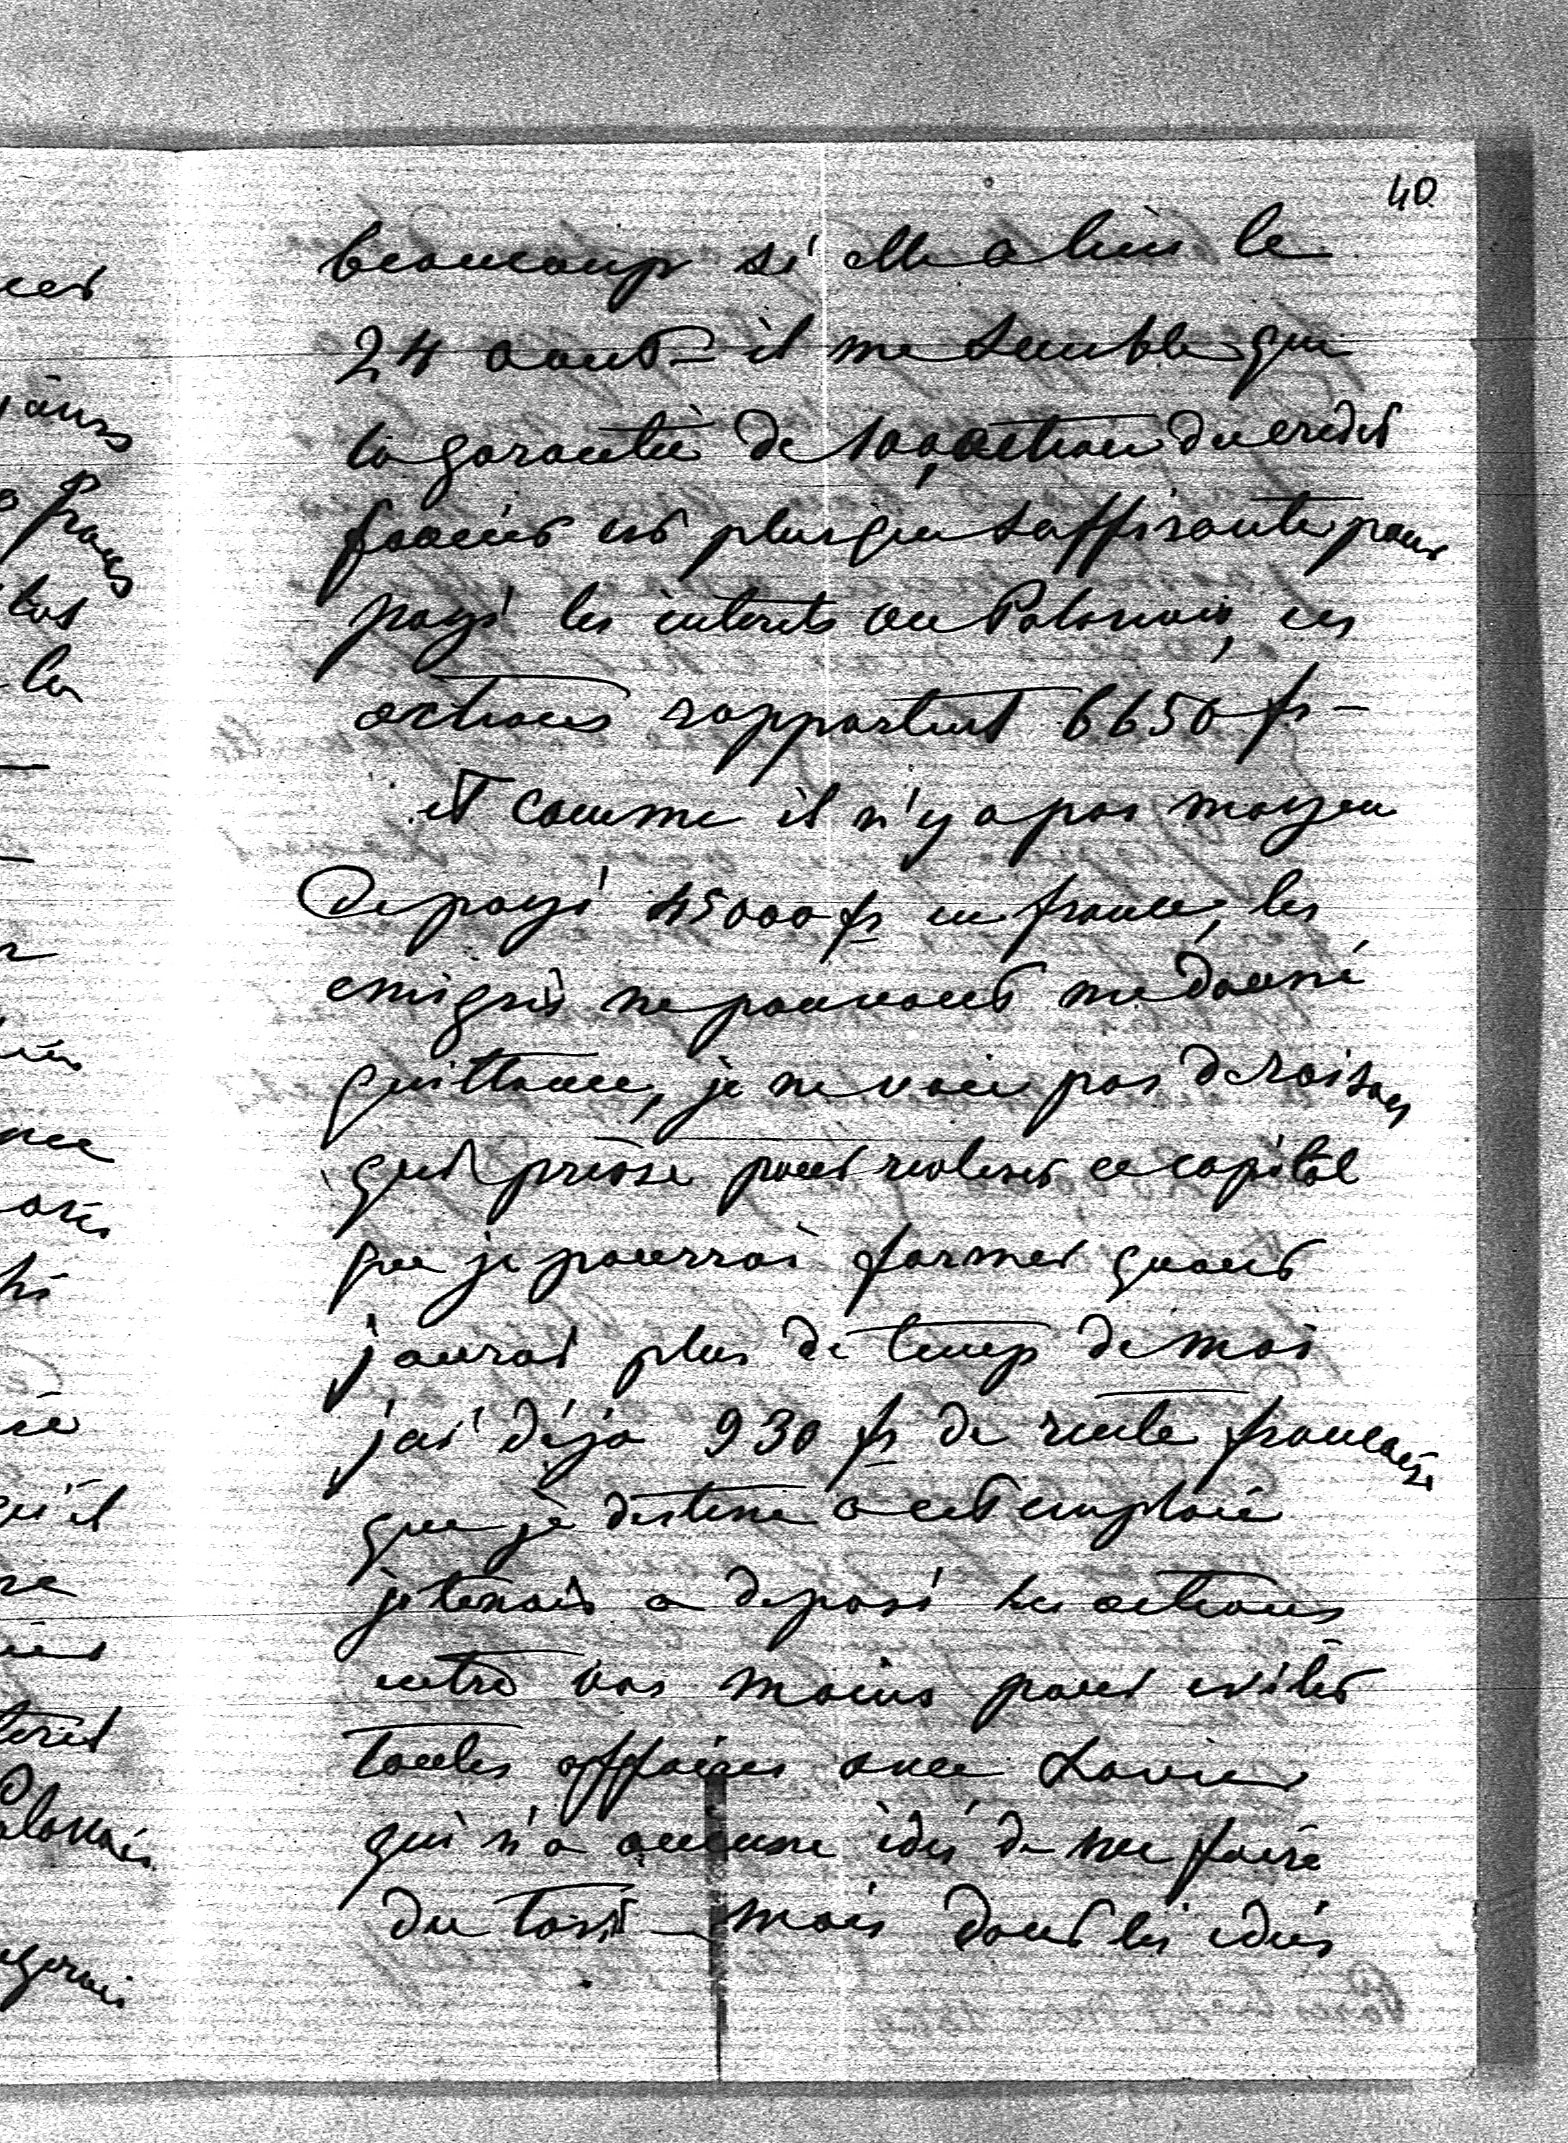 40
beaucoup si elle a lieu le
24 aout – il me semble que
la garantie de 100 action du credit
foncier est plus que suffisante pour
payé les interets au Polonais, ces
actions rapportent 6650 fr –
et comme il n'y a pas moyen
de payé 45000 fr en france, les
emigrés ne pouvant me donné
quittance, je ne voie pas de raisons
qui presse pour realiser ce capital
que je pourrai former quand
jaurai plus de temp de moi
j'ai déja 930 fr de rente francaise
que je destine a cet emploie
je tenais a deposé les actions
entre vos mains pour eviter
toutes affaires avec Xavier
qui n'a aucune idée de me faire
du tort – mais dont les idées